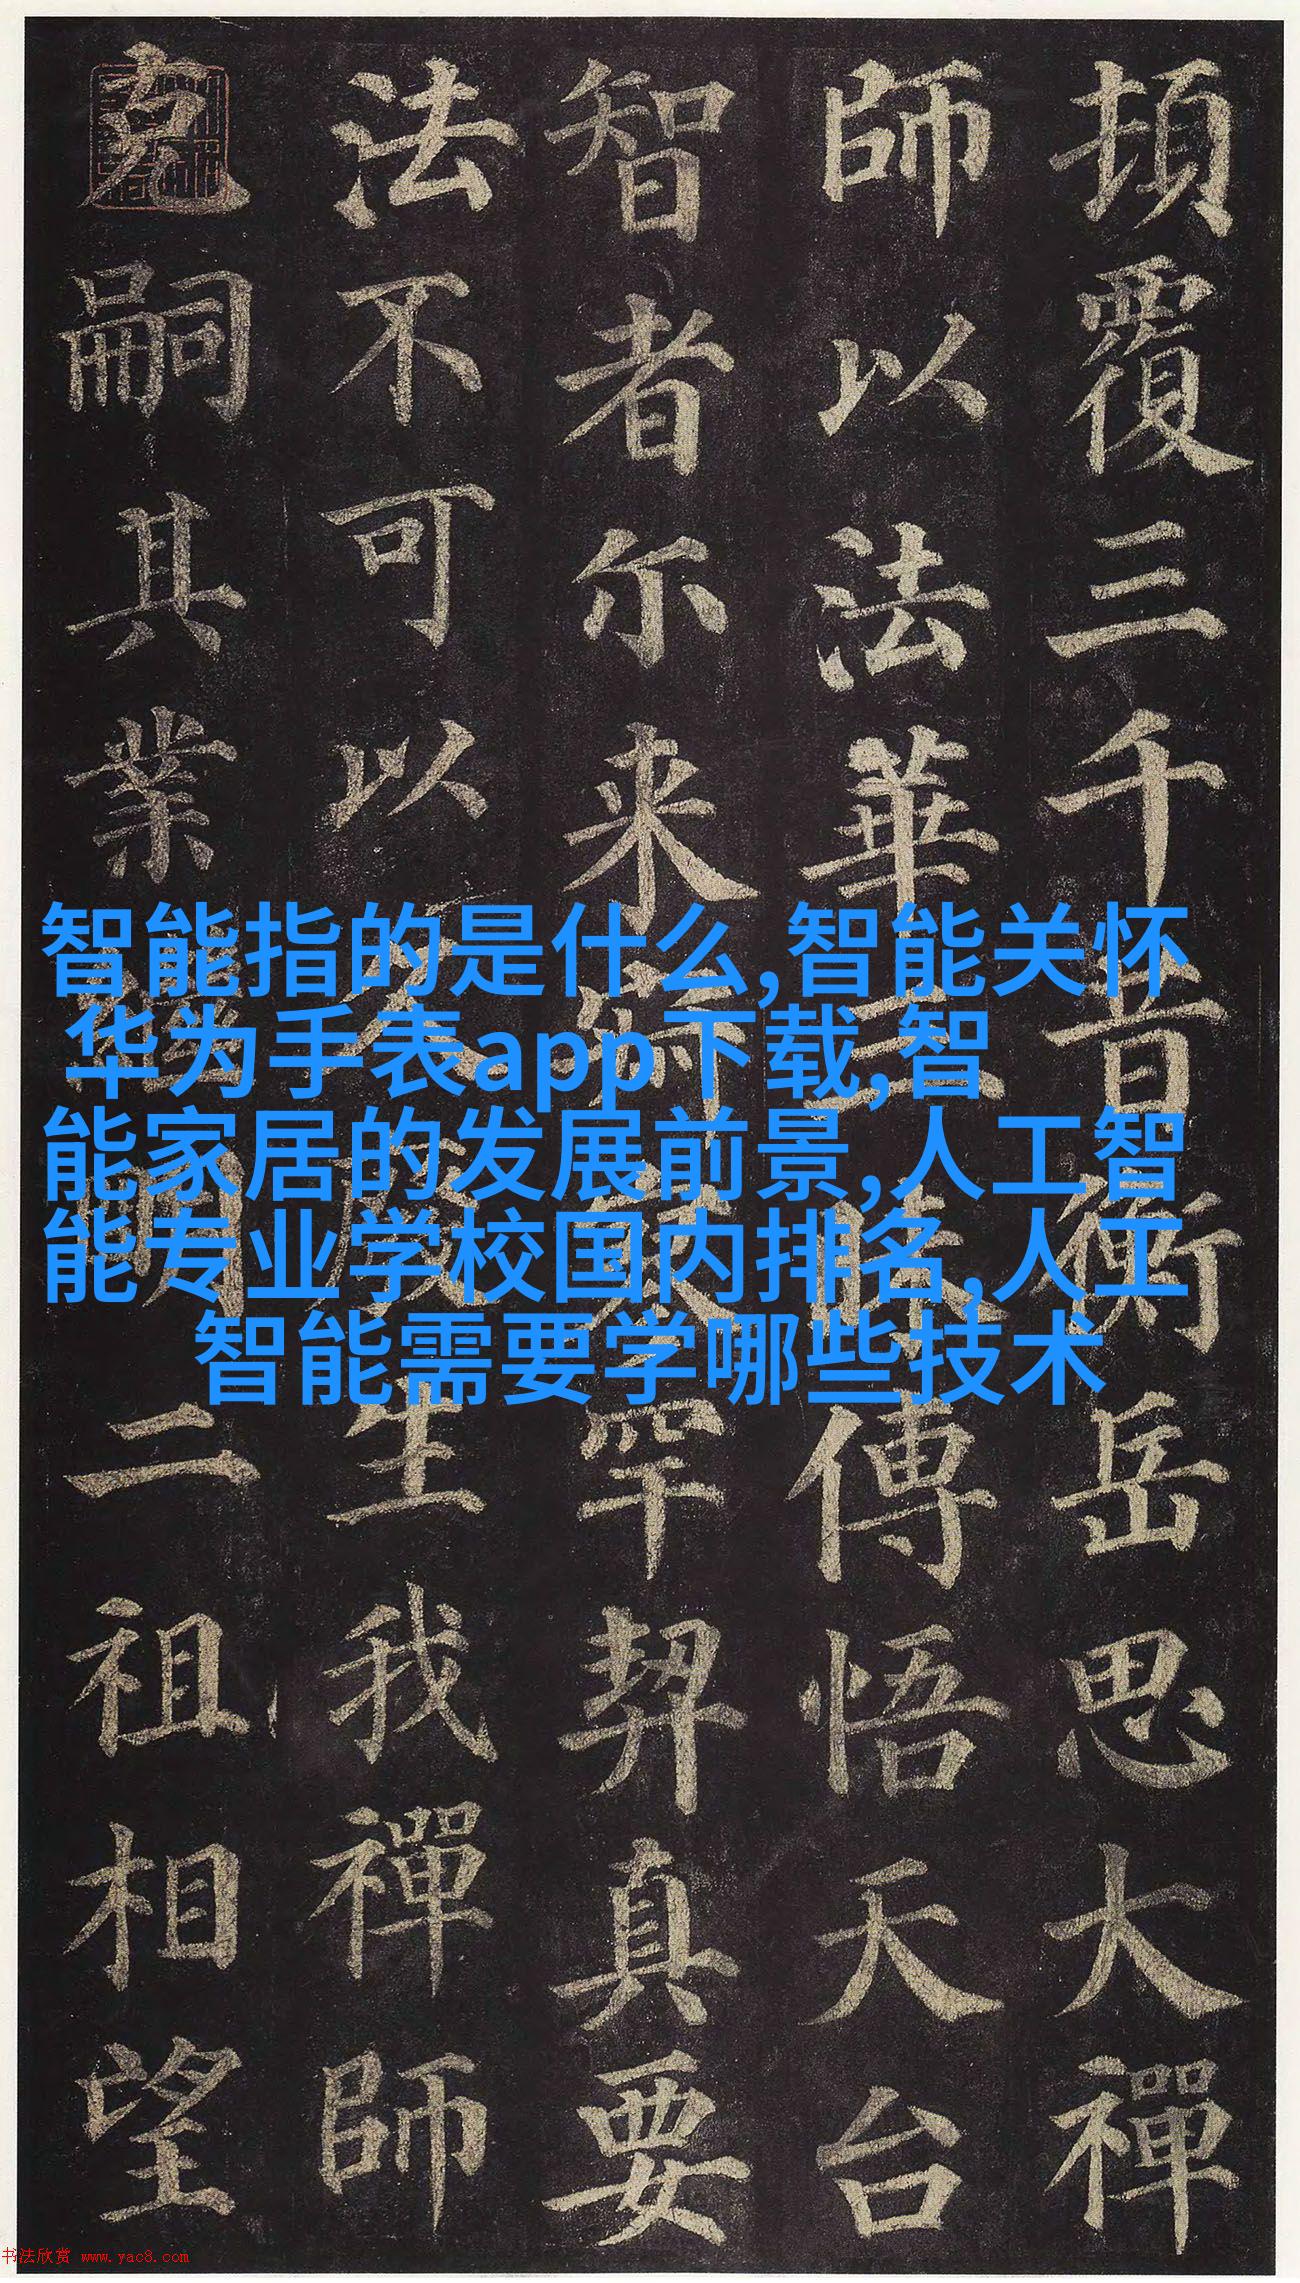 頓覆三千昔衡岳思大禪
師以法華三昧傳悟天台
智者尔来寂寥罕契真要
法不可以久廢生我禪師
克嗣其業繼明二祖相望
智能指的是什么,智能关怀
华为手表app下载,智
能家居的发展前景,人工智
能专业学校国内排名,人工
智能需要学哪些技术
书法欣赏 www.yac8.com